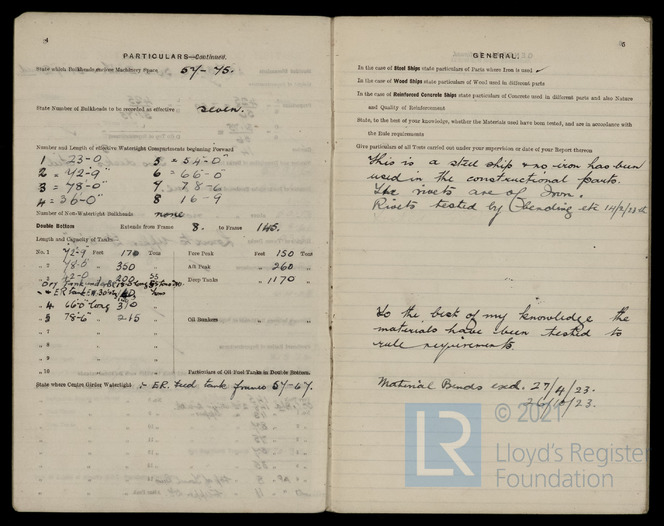 PARTICULARS—Continued.
State which Bulkheads enclose Machinery Space 57-75.
State Number of Bulkheads to be recorded as effective seven.
Number and Length of effective Watertight Compartments beginning Forward
1 = 23-0 5 = 54-0"
2 = 42-9" 6 = 66-0"
3 = 78-0" 7 78-6
4 = 36-0" 8 16-9
Number of Non-Watertight Bulkheads none
Double Bottom Extends from Frame 8. to Frame 145.
Length and Capacity of Tanks
No. 1 42-9" Feet 170 Tons Fore Peak 150 Tons
2 78-0" " 350 " Aft Peak 260 "
3 200 Deep Tanks 1170 "
4 66-0" long 310 "
5 78-6" " 215 " Oil Bunkers "
" 7 " "
" 8 " "
" 9 " "
" 10 " " Particulars of Oil Fuel Tanks in Double Bottom
State where Centre Girder Watertight :- E.R. Feed tank frames 57-67.
GENERAL.
In the case of Steel Ships state particulars of Parts where Iron is used
In the case of Wood Ships state particulars of Wood used in different parts
In the case of Reinforced Concrete Ships state particulars of Concrete used in different parts and also Nature
and Quality of Reinforcement
State, to the best of your knowledge, whether the Materials used have been tested, and are in accordance with
the Rule requirements
Give particulars of all Tests carried out under your supervision or date of your Report thereon
This is a steel ship & no iron has been
used in the constructional parts.
The rivets are of Iron.
Rivets tested by bending etc 14/2/23
To the best of my knowledge the
materials have been tested to
rule requirements.
Material Bends exd. 27/4/23.
26/10/23.
© 2021
LR
Lloyd's Register
Foundation